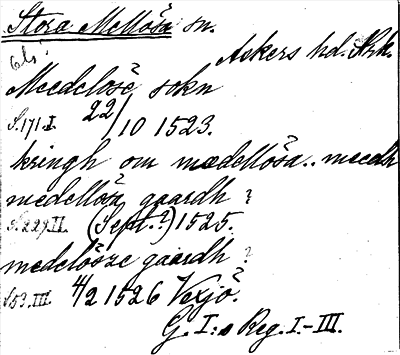 Stora Mellösa sn.
Askers hd. Nrk.
Meedelöse sokn
S. 171. I. 22/10 1523.
kringh om medellösa.. meedh
medellösa gaardh?
S. 227. II. (Sept.?) 1525.
medelösze gaardh?
S 53. III. 4/2 1526 Vexjö.
G. I:s Reg. I.–III.